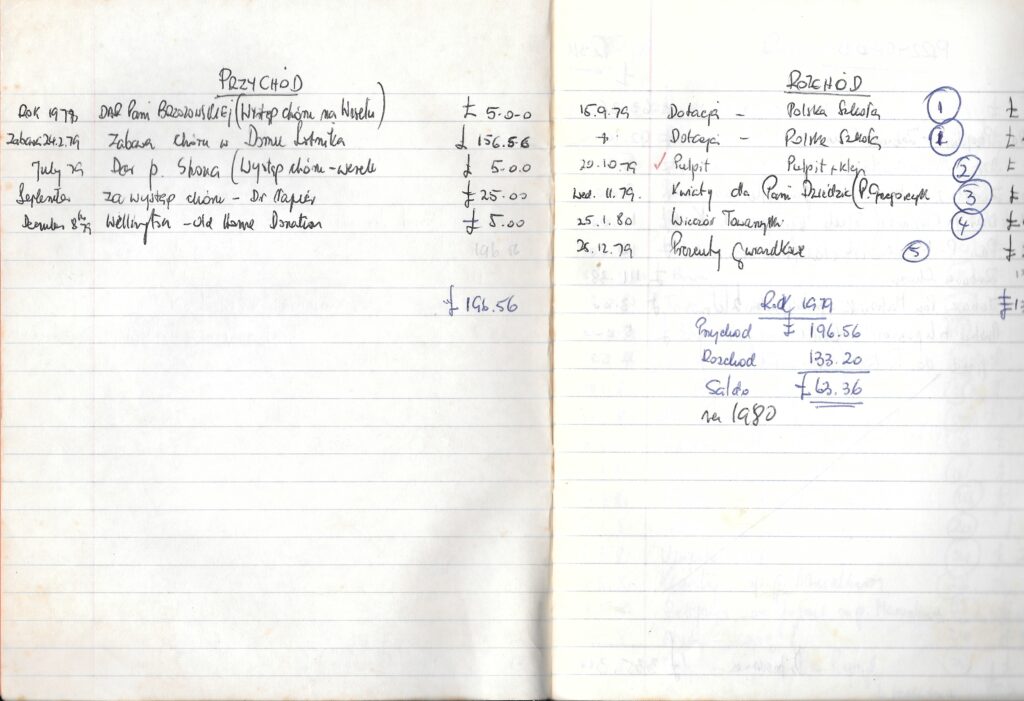 PRZYCHÓD
ROK 1978 DAR Pani BRZOZOWSKIEJ (Występ chóru na Weselu) £ 5.0.0
Zabawa 24.2.79 Zabawa chóru w Domu Lotnika £ 156.56
July 79 Dar p. (Występ chóru - wesele £ 5.0.0
September za występ chóru - Dr Napier £ 25.00
December 8th 79 Wellington - Old Home Donation £ 5.00
£ 196.56
ROZCHÓD
15.9.79 Dotacja - Polska Szkoła 1 £
Dotacja - Polska Szkoła £
29.10.79 ✓ Pulpit Pulpit + klej 2 £
Wed. 11.79. Kwiaty dla Pani 3 £
25.1.80 Wieczór Towarzyski 4 £
26.12.79 Prezenty Gwiazdkowe 5 £
Rok 1979
Przychod £ 196.56
Rozchod 133.20
Saldo £ 63.36
na 1980